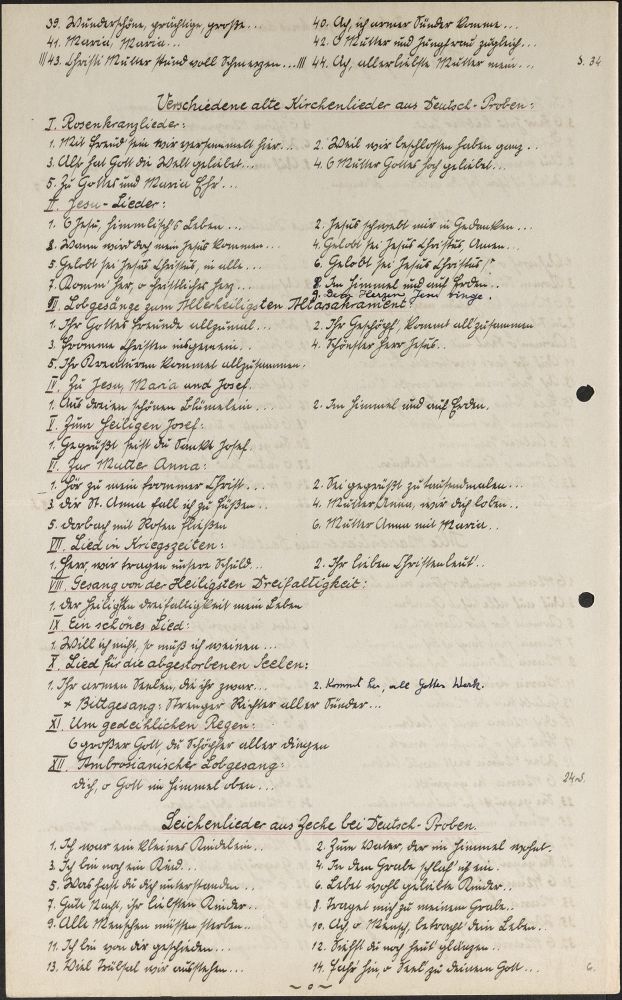 39. Wunderschöne, prächtige, große... 40. Ach, ich armer Sünder komme...
41. Maria, Maria... 42. O Mutter und Jungfrau zugleich...
43. Christi Mutter stund voll Schmerzen... 44. Ach, allerliebste Mutter mein... S. 34
Verschiedene alte Kirchenlieder aus Deutsch-Proben:
I. Rosenkranzlieder:
1. Mit Freud sein wir versammelt hier... 2. Weil wir beschlossen haben ganz...
3. Also hat Gott die Welt geliebet... 4. O Mutter Gottes hoch geliebet...
5. Zu Gottes und Maria Ehr'...
II. Jesu-Lieder:
1. O Jesu, himmlisch's Leben... 2. Jesus schwebt mir in Gedanken...
3. Wann wird doch mein Jesus kommen... 4. Gelobt sei Jesus Christus, Amen...
5. Gelobt sei Jesus Christus, in alle... 6. Gelobt sei Jesus Christus!
7. Komm' her, o christliches Herz... 8. Im Himmel und auf Erden..
9. Dem Herzen Jesu singe.
III. Lobgesänge zum Allerheiligsten Altarsakrament:
1. Ihr Gottes Freunde allzumal... 2. Ihr Geschöpf, kommt all zusammen
3. Fromme Christen insgemein.. 4. Schönster Herr Jesus..
5. Ihr Kreaturen kommet allzusammen.
IV. Zu Jesu, Maria und Josef.
1. Aus dreien schönen Blümelein... 2. Im Himmel und auf Erden.
V. Zum Heiligen Josef:
1. Gegrüßt seist du Sankt Josef.
VI. Zur Mutter Anna:
1. Hör zu mein frommer Christ... 2. Sei gegrüßt zu tausendmalen...
3. Dir St. Anna fall ich zu Füßen.. 4. Mutter Anna, wir dich loben..
5. mit Rosen 6. Mutter Anna mit Maria..
VII. Lied in Kriegszeiten:
1. Herr, wir tragen unsere Schuld... 2. Ihr lieben Christenleut'..
VIII. Gesang von der Heiligsten Dreifaltigkeit:
1. Der heiligsten Dreifaltigkeit mein Leben
IX. Ein schönes Lied:
1. Will ich nicht, so muß ich weinen...
X. Lied für die abgestorbenen Seelen:
1. Ihr armen Seelen, die ihr zwar... 2. Kommt her, all Gottes Werk.
+ Bittgesang: Strenger Richter aller Sünder...
XI. Um gedeihlichen Regen:
O großer Gott, du Schöpfer aller Dingen
XII. Ambrosianischer Lobgesang:
Dich, o Gott im Himmel oben... 24 S.
Leichenlieder aus Zeche bei Deutsch-Proben.
1. Ich war ein kleines Kindelein.. 2. Zum Vater, der im Himmel wohnt.
3. Ich bin noch ein Kind... 4. In dem Grabe schlaf' ich ein.
5. Was hast du dich unterstanden.. 6. Lebet wohl geliebte Kinder..
7. Gute Nacht, ihr liebsten Kinder.. 8. Traget mich zu meinem Grabe..
9. Alle Menschen müssen sterben.. 10. Ach, o Mensch, betracht' dein Leben..
11. Ich bin von dir geschieden... 12. Siehst du noch heut' glänzen..
13. Viel Trübsal wir ausstehen... 14. Fahr' hin, o Seel' zu deinem Gott... 6.